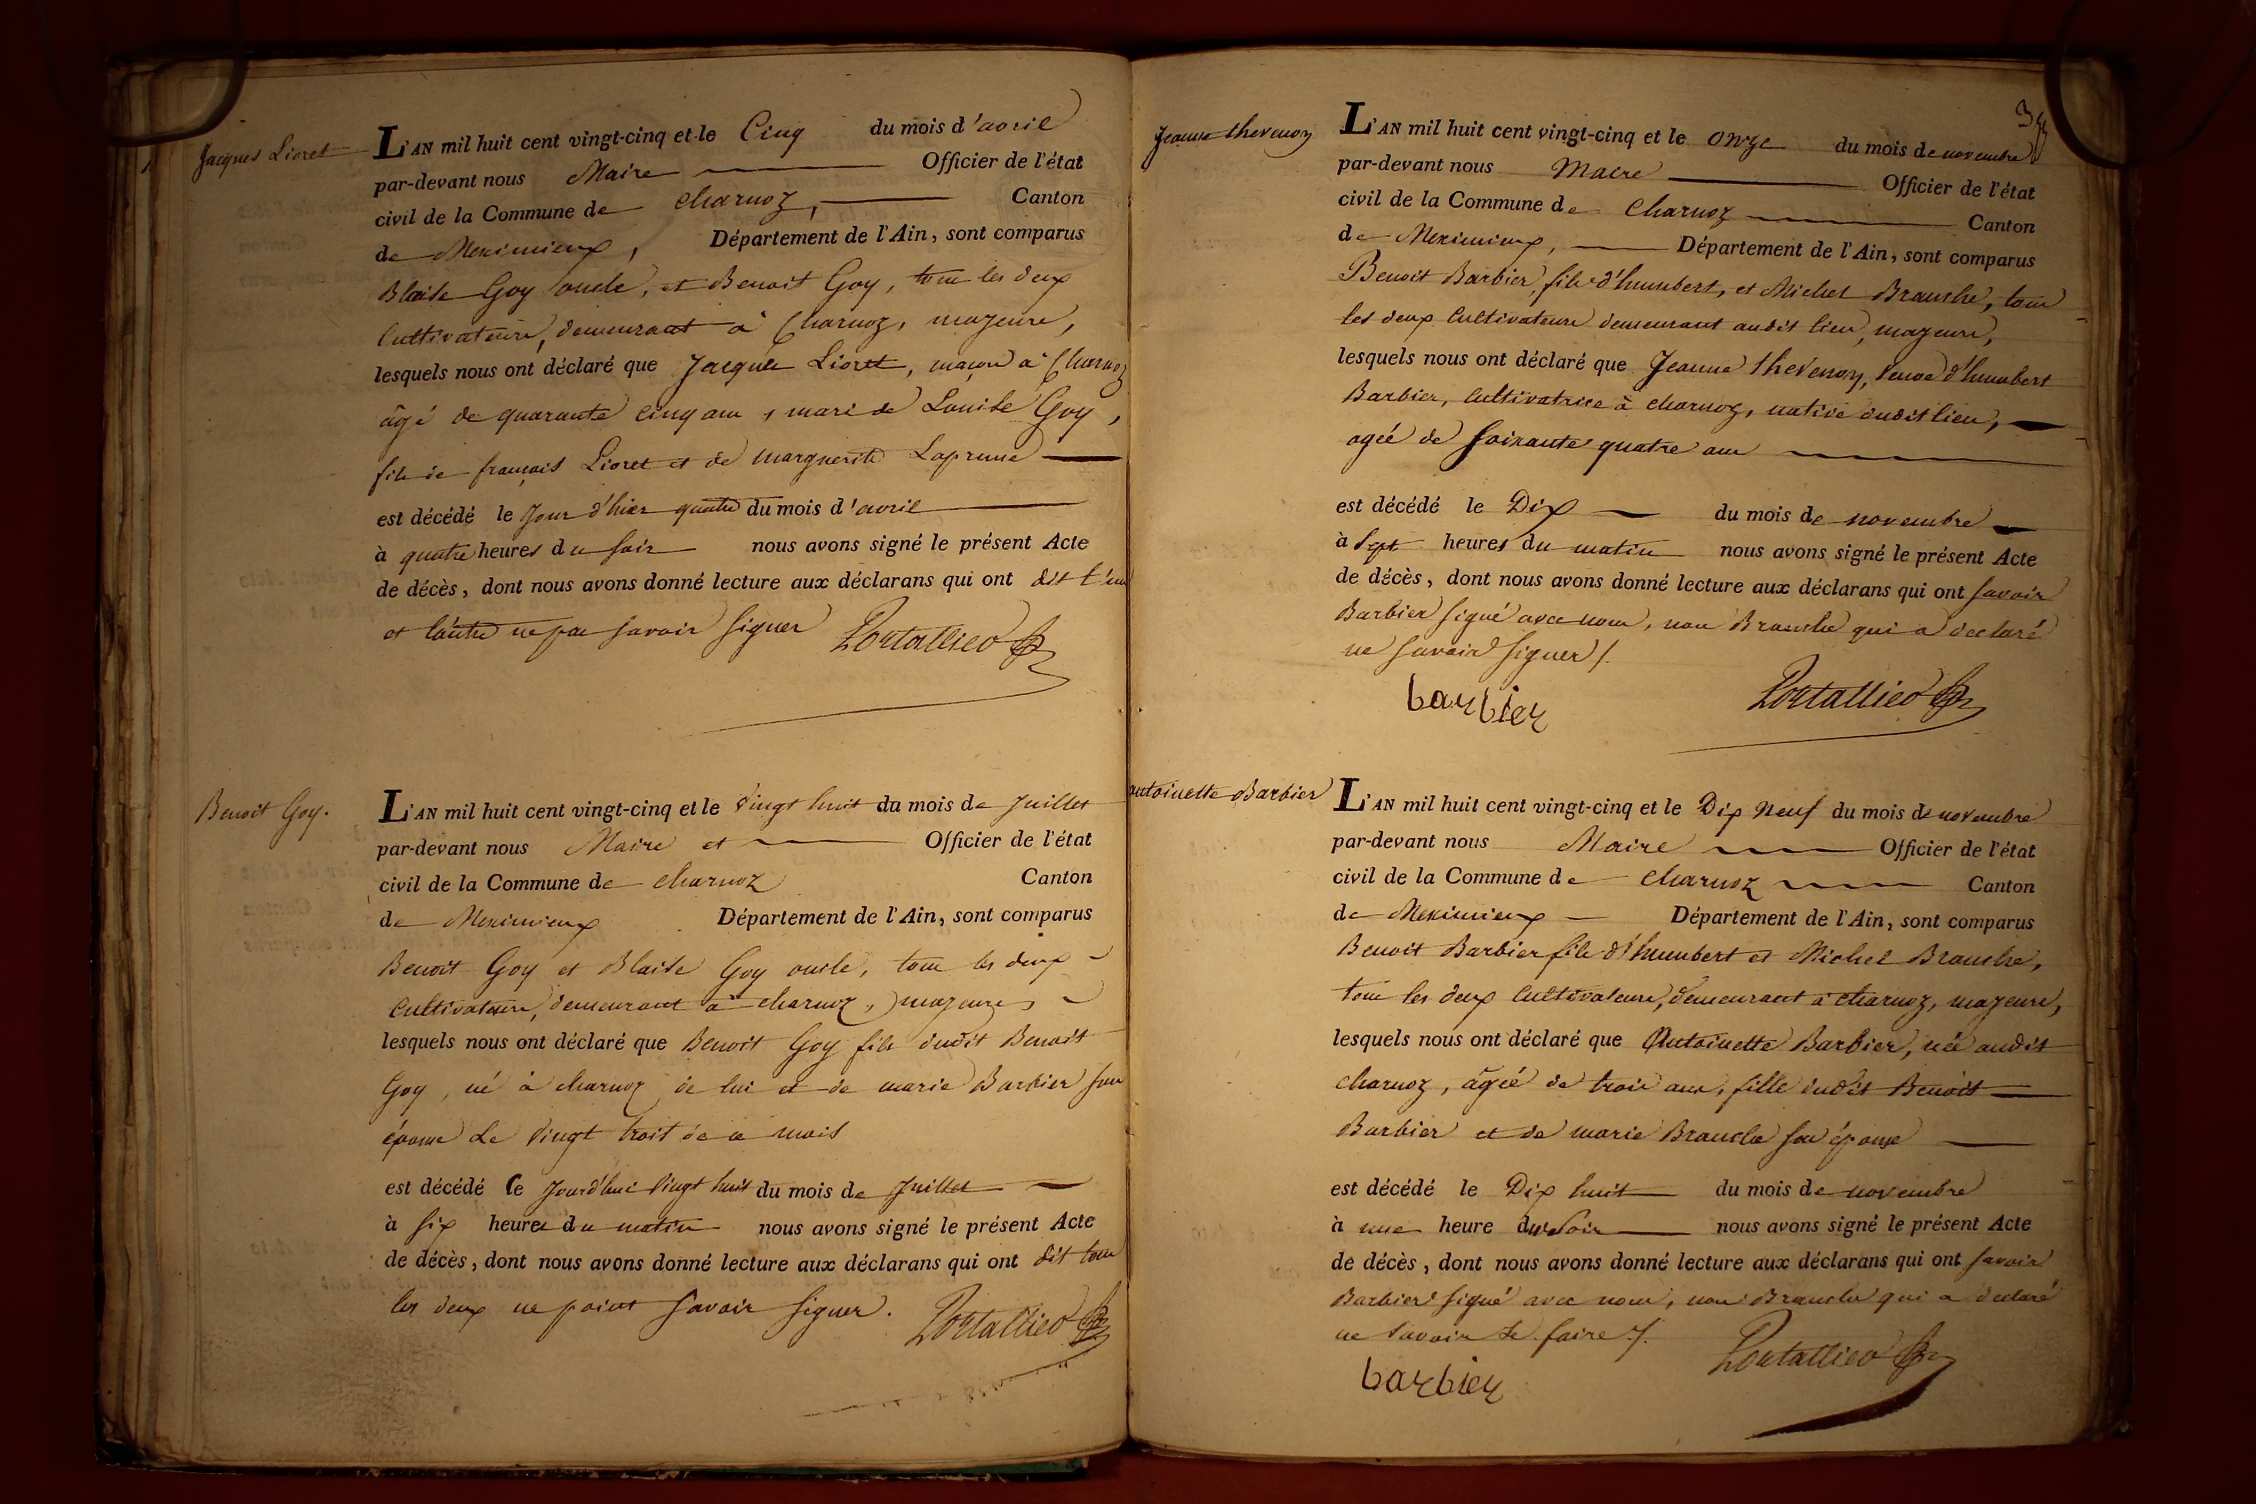 Jacques Lioret
L'AN mil huit cent vingt-cinq et le Cinq du mois d'avril
par-devant nous Maire Officier de l'état
civil de la Commune de Charnoz, Canton
de Meximieux, Département de l'Ain, sont comparus
Blaise Goy oncle, et Benoit Goy, tous les deux
Cultivateurs, demeurant à Charnoz, majeurs,
lesquels nous ont déclaré que Jacques Lioret, maçon à Charnoz
âgé de quarante cinq ans, mari de Louise Goy,
fils de françois Lioret et de marguerite Laprune
est décédé le Jour d'hier quatre du mois d'avril
à quatre heures du soir nous avons signé le présent Acte
de décès, dont nous avons donné lecture aux déclarans qui ont dit l'un
et l'autre ne pas savoir signer Portallier
Benoit Goy.
L'AN mil huit cent vingt-cinq et le vingt huit du mois de Juillet
par-devant nous Maire et Officier de l'état
civil de la Commune de charnoz Canton
de Meximieux Département de l'Ain, sont comparus
Benoit Goy et Blaise Goy oncle, tous les deux
Cultivateurs, demeurant à charnoz, majeurs,
lesquels nous ont déclaré que Benoit Goy fils dudit Benoit
Goy, né à charnoz de lui et de marie Barbier son
épouse Le vingt trois de ce mois
est décédé Ce Jourd'hui vingt huit du mois de Juillet
à six heures du matin nous avons signé le présent Acte
de décès, dont nous avons donné lecture aux déclarans qui ont dit tous
les deux ne point Savoir signer. Portallier
Jeanne thevenon
L'AN mil huit cent vingt-cinq et le onze du mois de novembre
par-devant nous Maire Officier de l'état
civil de la Commune de Charnoz Canton
de Meximieux, Département de l'Ain, sont comparus
Benoit Barbier, fils d'humbert, et Michel Branche, tous
les deux Cultivateurs demeurant audit lieu, majeurs,
lesquels nous ont déclaré que Jeanne thevenon, veuve d'humbert
Barbier, Cultivatrice à charnoz, native dudit lieu,
agée de soixante quatre ans
est décédé le Dix du mois de novembre
à Sept heures du matin nous avons signé le présent Acte
de décès, dont nous avons donné lecture aux déclarans qui ont savoir
Barbier signé avec nous, non Branche qui a déclaré
ne savoir signer /.
barbier Portallier
antoinette Barbier
L'AN mil huit cent vingt-cinq et le Dix Neuf du mois de novembre
par-devant nous Maire Officier de l'état
civil de la Commune de charnoz Canton
de Meximieux Département de l'Ain, sont comparus
Benoit Barbier fils d'humbert et Michel Branche,
tous les deux Cultivateurs, demeurant à charnoz, majeurs,
lesquels nous ont déclaré que Antoinette Barbier, née audit
charnoz, âgée de trois ans, fille dudit Benoit
Barbier et de marie Branche son épouse
est décédé le Dix huit du mois de novembre
à une heure du soir nous avons signé le présent Acte
de décès, dont nous avons donné lecture aux déclarans qui ont savoir
Barbier signé avec nous, non Branche qui a déclaré
ne savoir Le faire /.
barbier Portallier